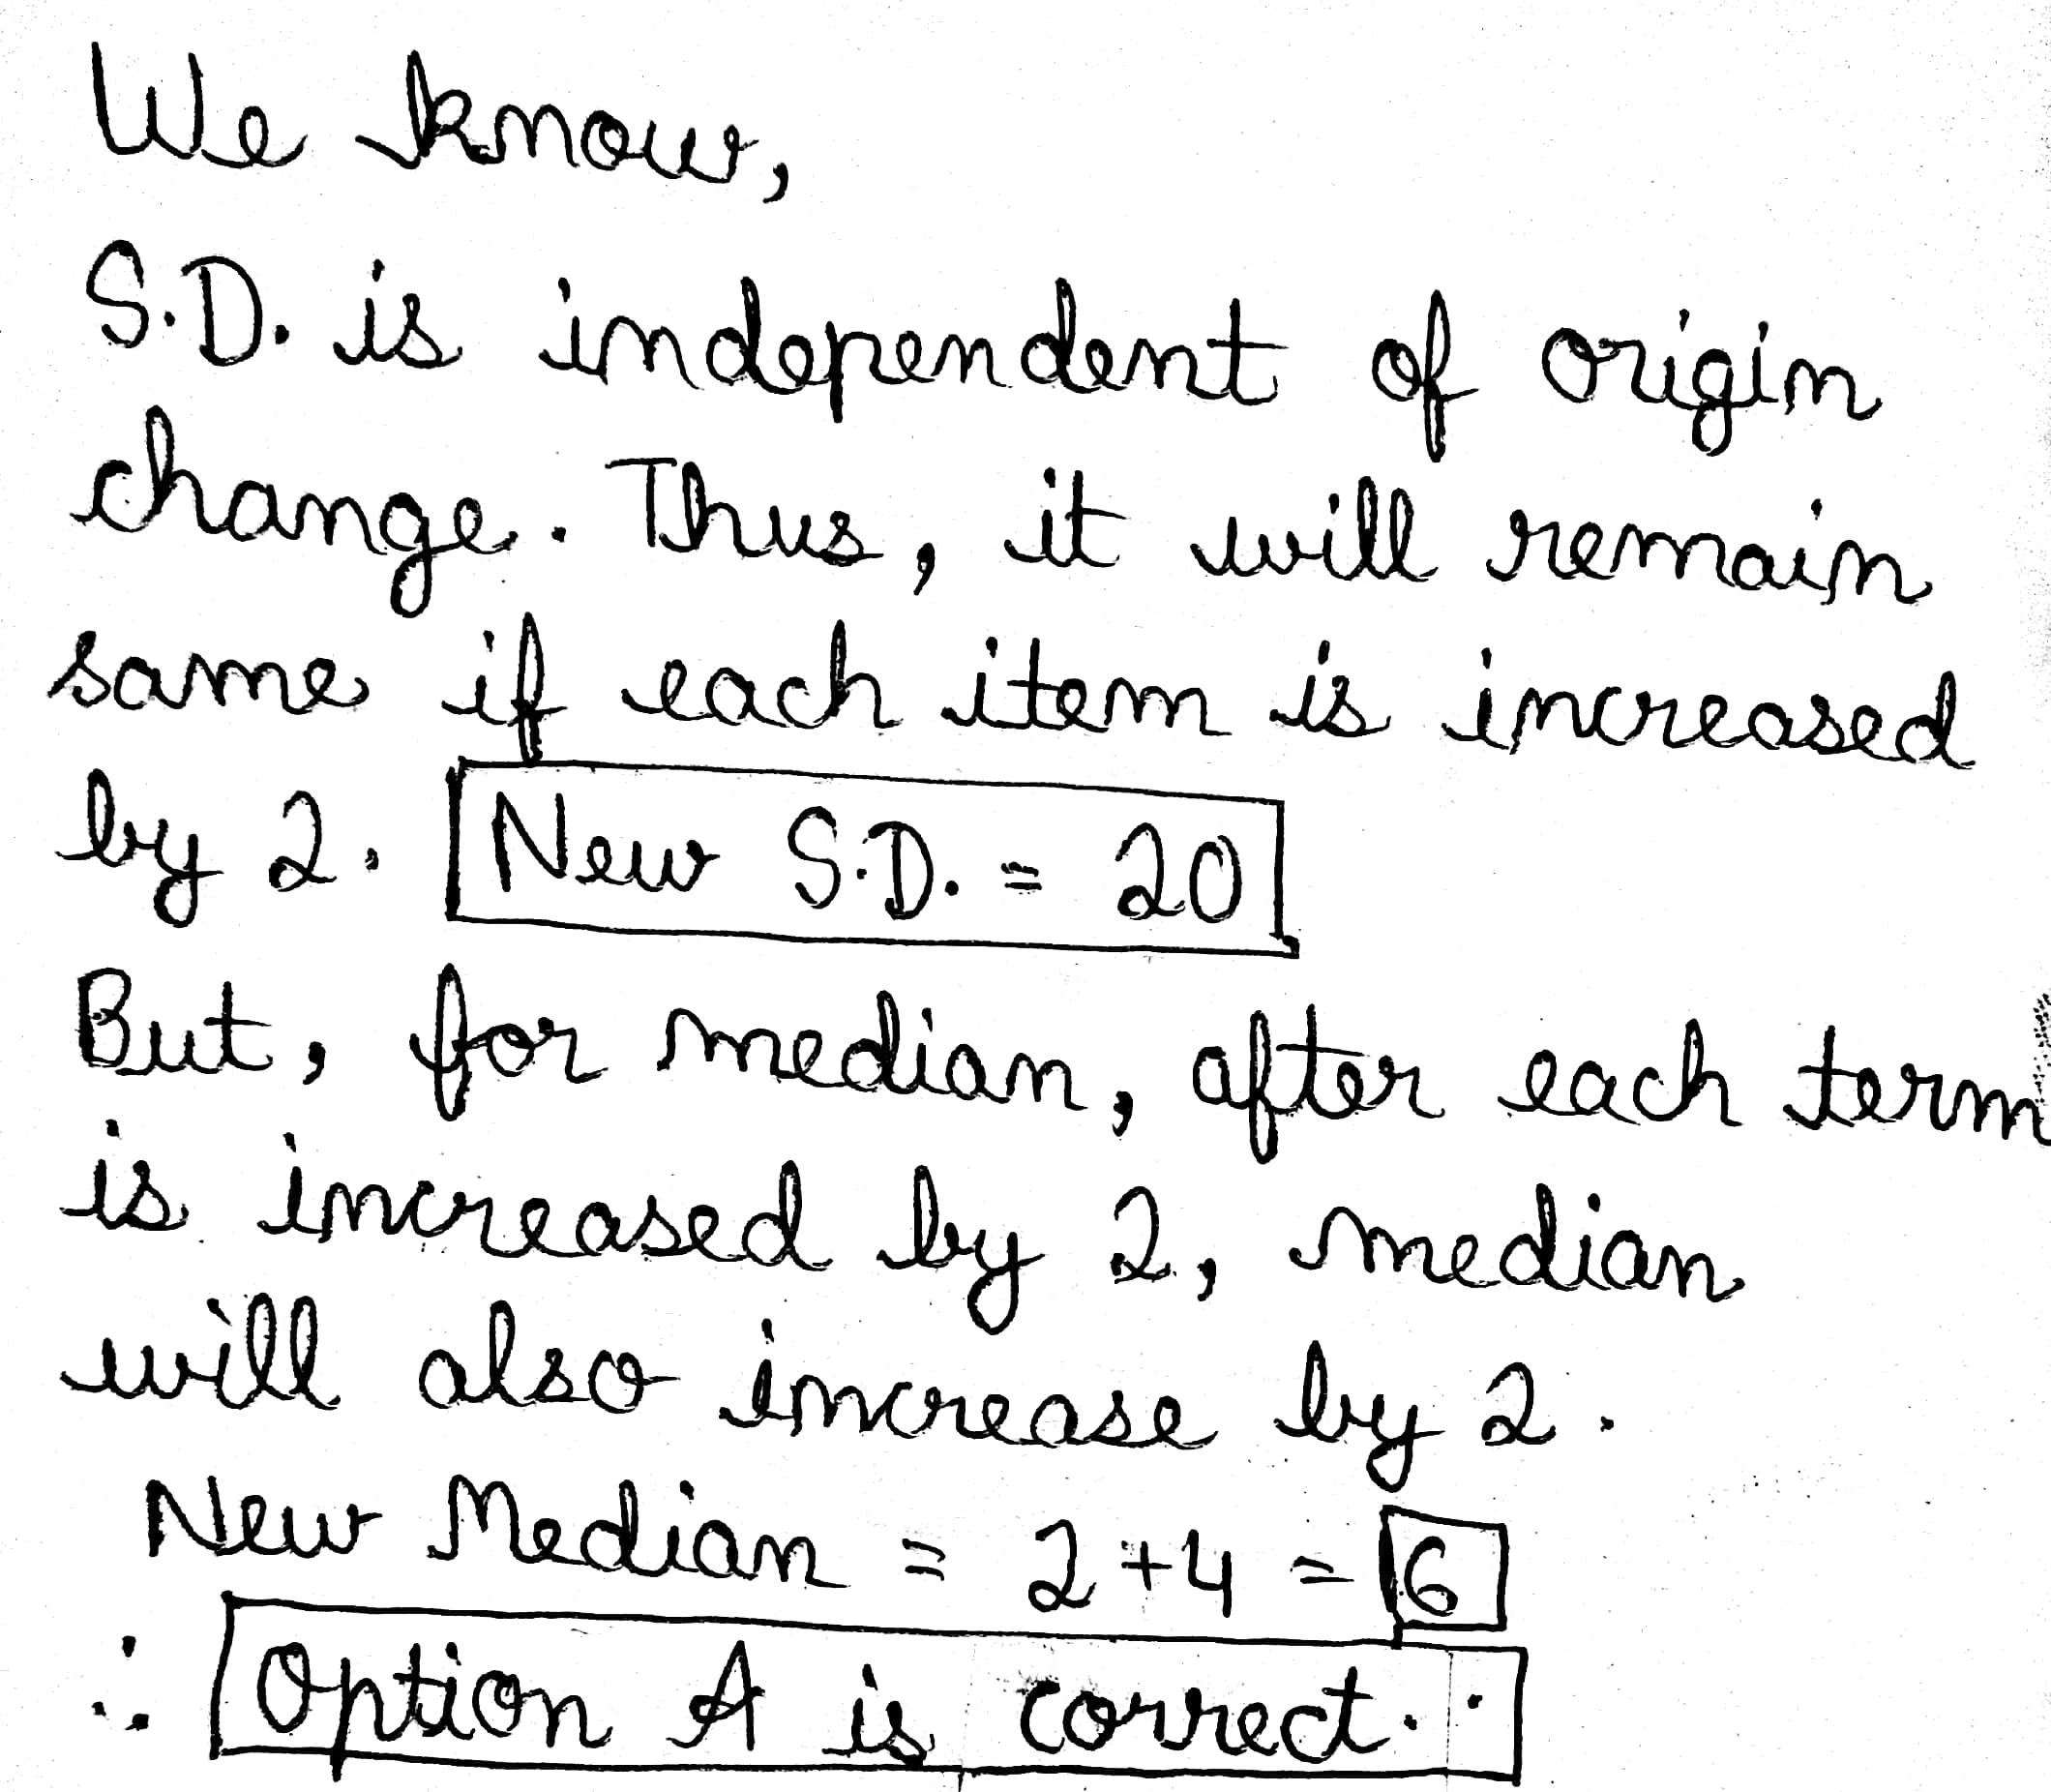 We know,
S.D. is independent of origin
change. Thus, it will remain
same if each item is increased
by 2. New S.D. = 20
But, for median, after each term
is increased by 2, median
will also increase by 2.
New Median = 2 + 4 = 6
∴ Option A is correct.